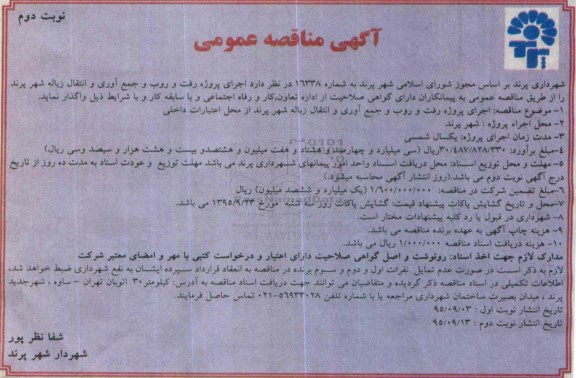 نوبت دوم
آگهی مناقصه عمومی
شهرداری پرند بر اساس مجوز شورای اسلامی شهر پرند به شماره ۱۶۳۳۸ در نظر دارد اجرای پروژه رفت و روب و جمع آوری و انتقال زباله شهر پرند
را از طریق مناقصه عمومی به پیمانکاران دارای گواهی صلاحیت از اداره تعاون،کار و رفاه اجتماعی و با سابقه کار و با شرایط ذیل واگذار نماید.
۱-موضوع مناقصه: اجرای پروژه رفت و روب و جمع آوری و انتقال زباله شهر پرند از محل اعتبارات داخلی
۲- محل اجراء پروژه : شهر پرند
۳- مدت زمان اجرای پروژه: یکسال شمسی
۴-مبلغ برآورد: ۳۰/۴۸۷/۸۲۸/۳۳۰ریال (سی میلیارد و چهارصدو هشتاد و هفت میلیون و هشتصدو بیست و هشت هزار و سیصد وسی ریال)
۵- مهلت و محل توزیع اسناد: محل دریافت اسناد واحد امور پیمانهای شهرداری پرند می باشد مهلت توزیع و عودت اسناد به مدت ده روز از تاریخ
درج آگهی نوبت دوم می باشد.(روز انتشار آگهی محاسبه میشود.)
۶-مبلغ تضمین شرکت در مناقصه: ۱/۶۰۰/۰۰۰/۰۰۰ (یک میلیارد و ششصد میلیون) ریال
۷-محل و تاریخ گشایش پاکات پیشنهاد قیمت: گشایش پاکات روز سه شنبه مورخ ۱۳۹۵/۹/۲۳ می باشد.
۸- شهرداری در قبول یا رد کلیه پیشنهادات مختار است.
۹- هزینه چاپ آگهی به عهده برنده مناقصه می باشد.
۱۰- هزینه دریافت اسناد مناقصه ۱/۰۰۰/۰۰۰ ریال می باشد.
مدارک لازم جهت اخذ اسناد: رونوشت و اصل گواهی صلاحیت دارای اعتبار و درخواست کتبی با مهر و امضای معتبر شرکت
لازم به ذکر است در صورت عدم تمایل نفرات اول و دوم و سوم برنده در مناقصه به انعقاد قرارداد سپرده ایشان به نفع شهرداری ضبط خواهد شد،
اطلاعات تکمیلی در اسناد مناقصه ذکر گردیده و متقاضیان می توانند جهت دریافت اسناد مناقصه به آدرس: کیلومتر۳۰ اتوبان تهران - ساوه ، شهرجدید
پرند ، میدان بصیرت ساختمان شهرداری مراجعه یا با شماره تلفن ۵۶۹۳۳۰۲۸-۰۲۱ تماس حاصل فرمایند.
تاریخ انتشار نوبت اول : ۹۵/۰۹/۰۳
تاریخ انتشار نوبت دوم : ۹۵/۰۹/۱۳
شفا نظر پور
شهردار شهر پرند